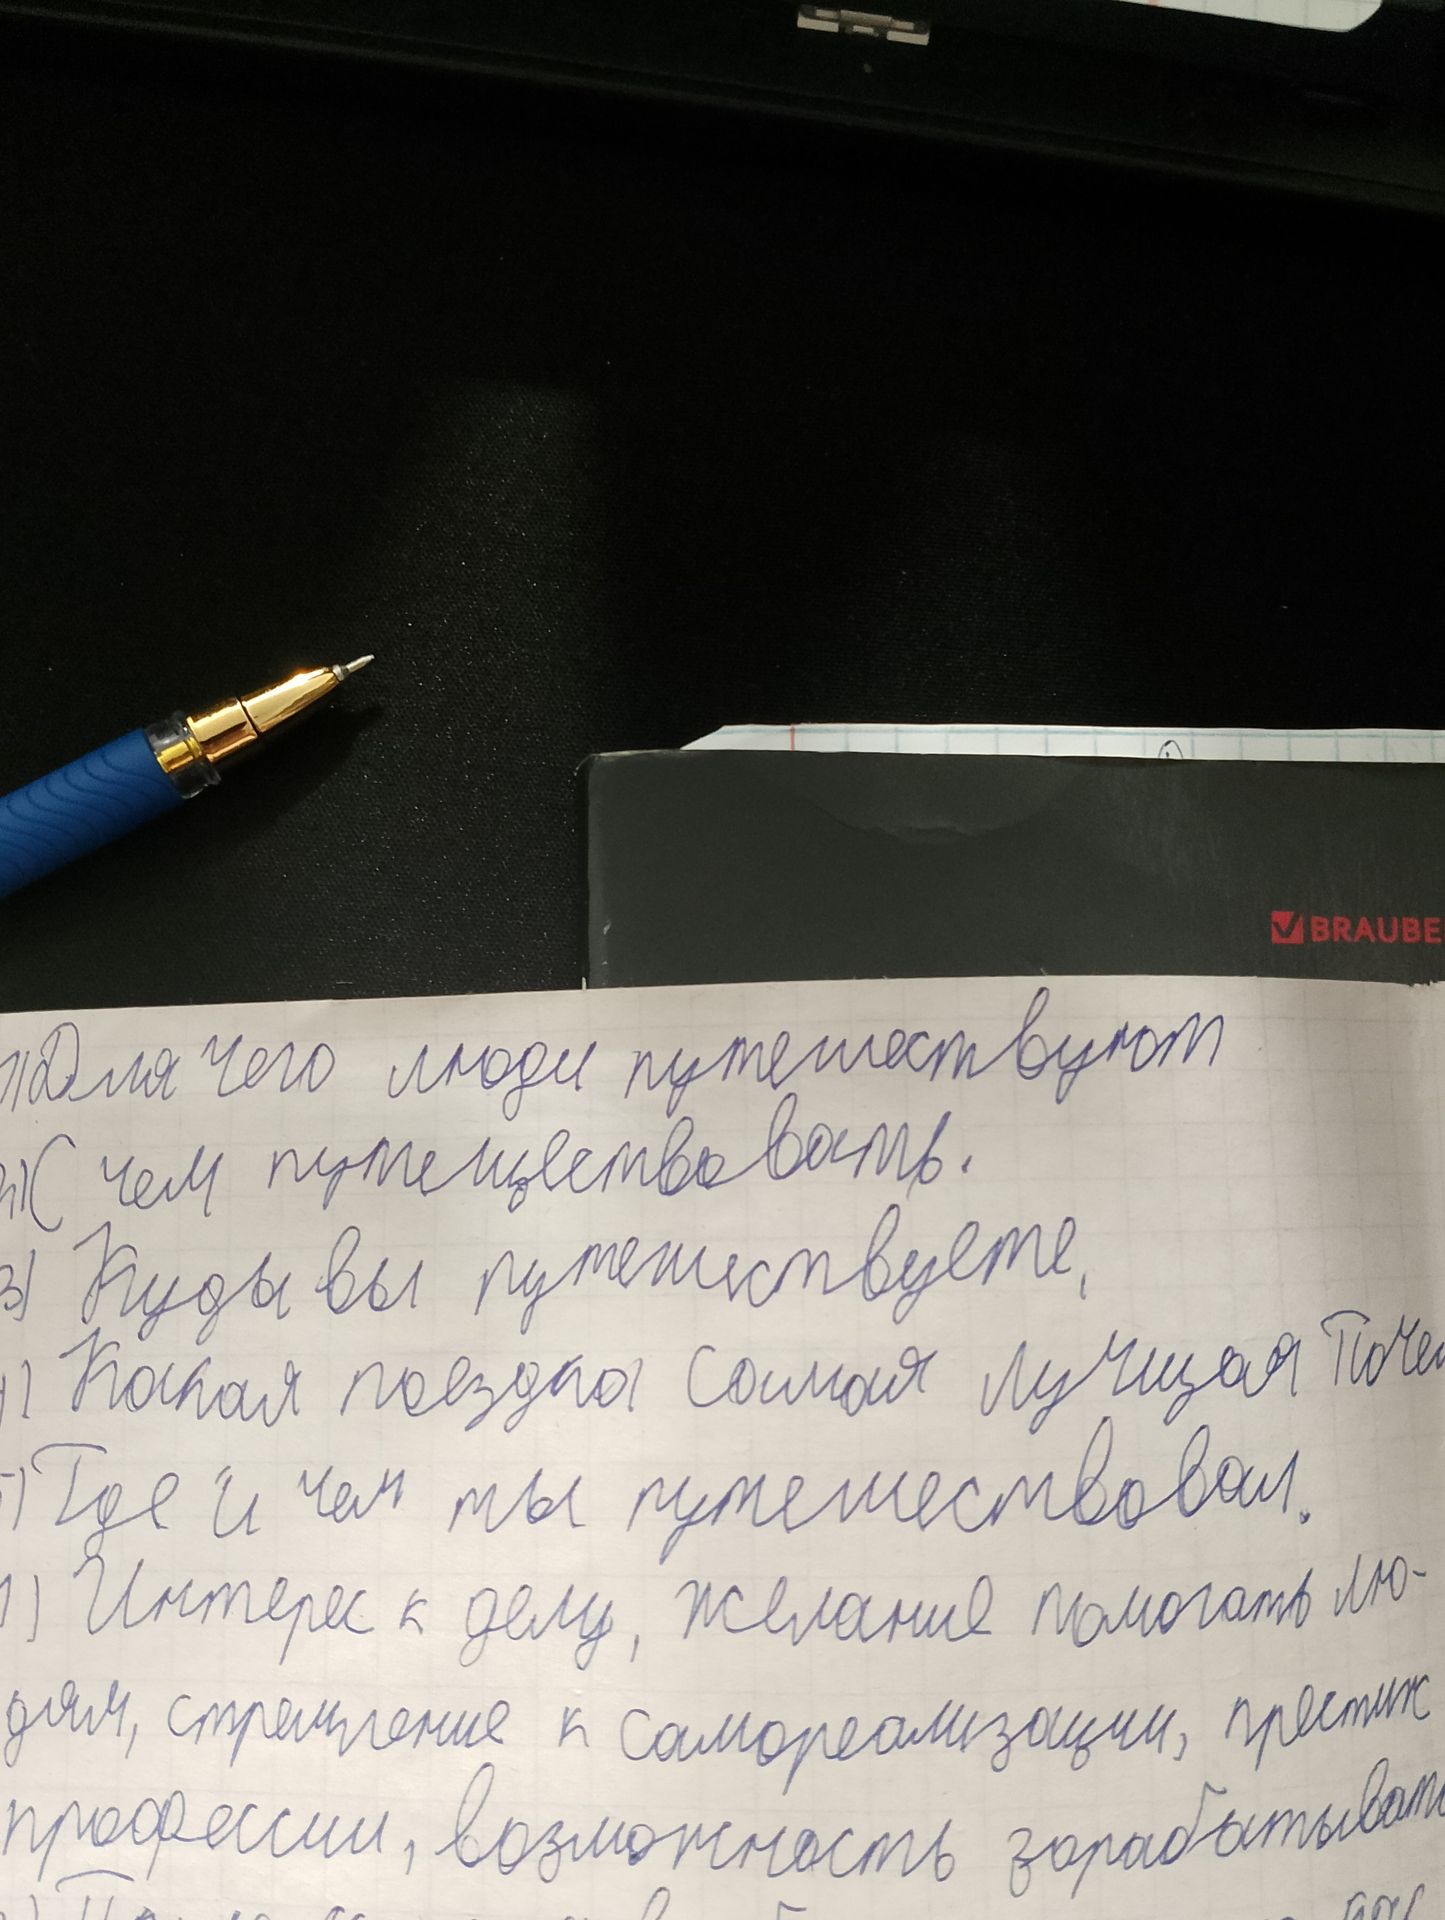 BRAUBE
1) Для чего люди путешествуют
2) С чем путешествовать.
3) Куда вы путешествуете,
4) Какая поездка самая лучшая Почем
5) Где и чем ты путешествовал.
1) Интерес к делу, желание помогать лю-
дям, стремление к самореализации, престиж
профессии, возможность зарабатывать